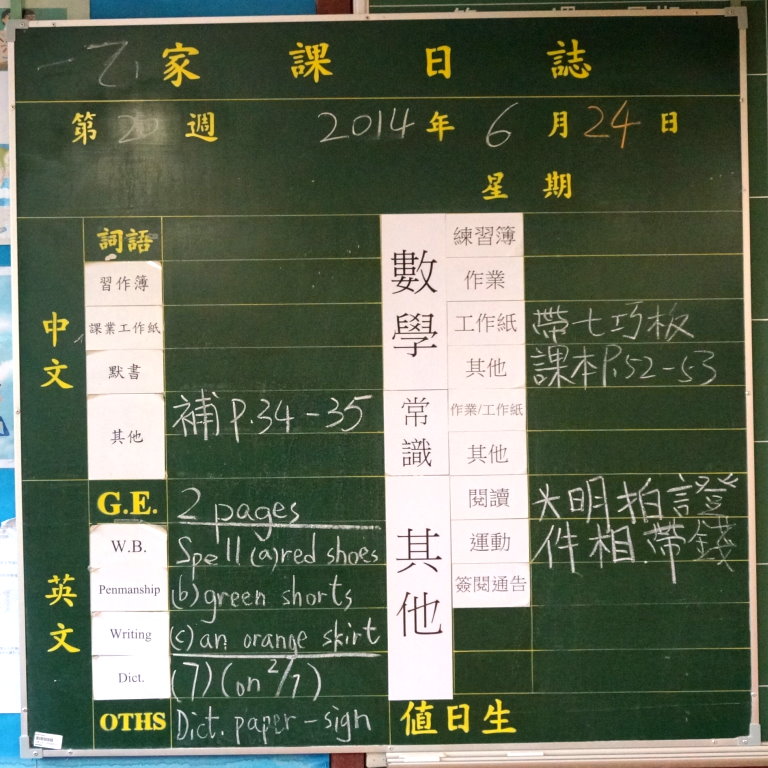 一乙 家 課 日 誌
第 20 週 2014 年 6 月 24 日
星 期
中文
詞語
習作簿
課業工作紙
默書
其他 補 P.34-35
英文
G.E. 2 pages
W.B. Spell (a) red shoes
Penmanship (b) green shorts
Writing (c) an orange skirt
Dict. (7) (on 2/7)
OTHS Dict. paper - sign
數學
練習簿
作業
工作紙 帶七巧板
其他 課本P.52-53
常識
作業/工作紙
其他
其他
閱讀 大明拍證
運動 件相.帶錢
簽閱通告
值日生